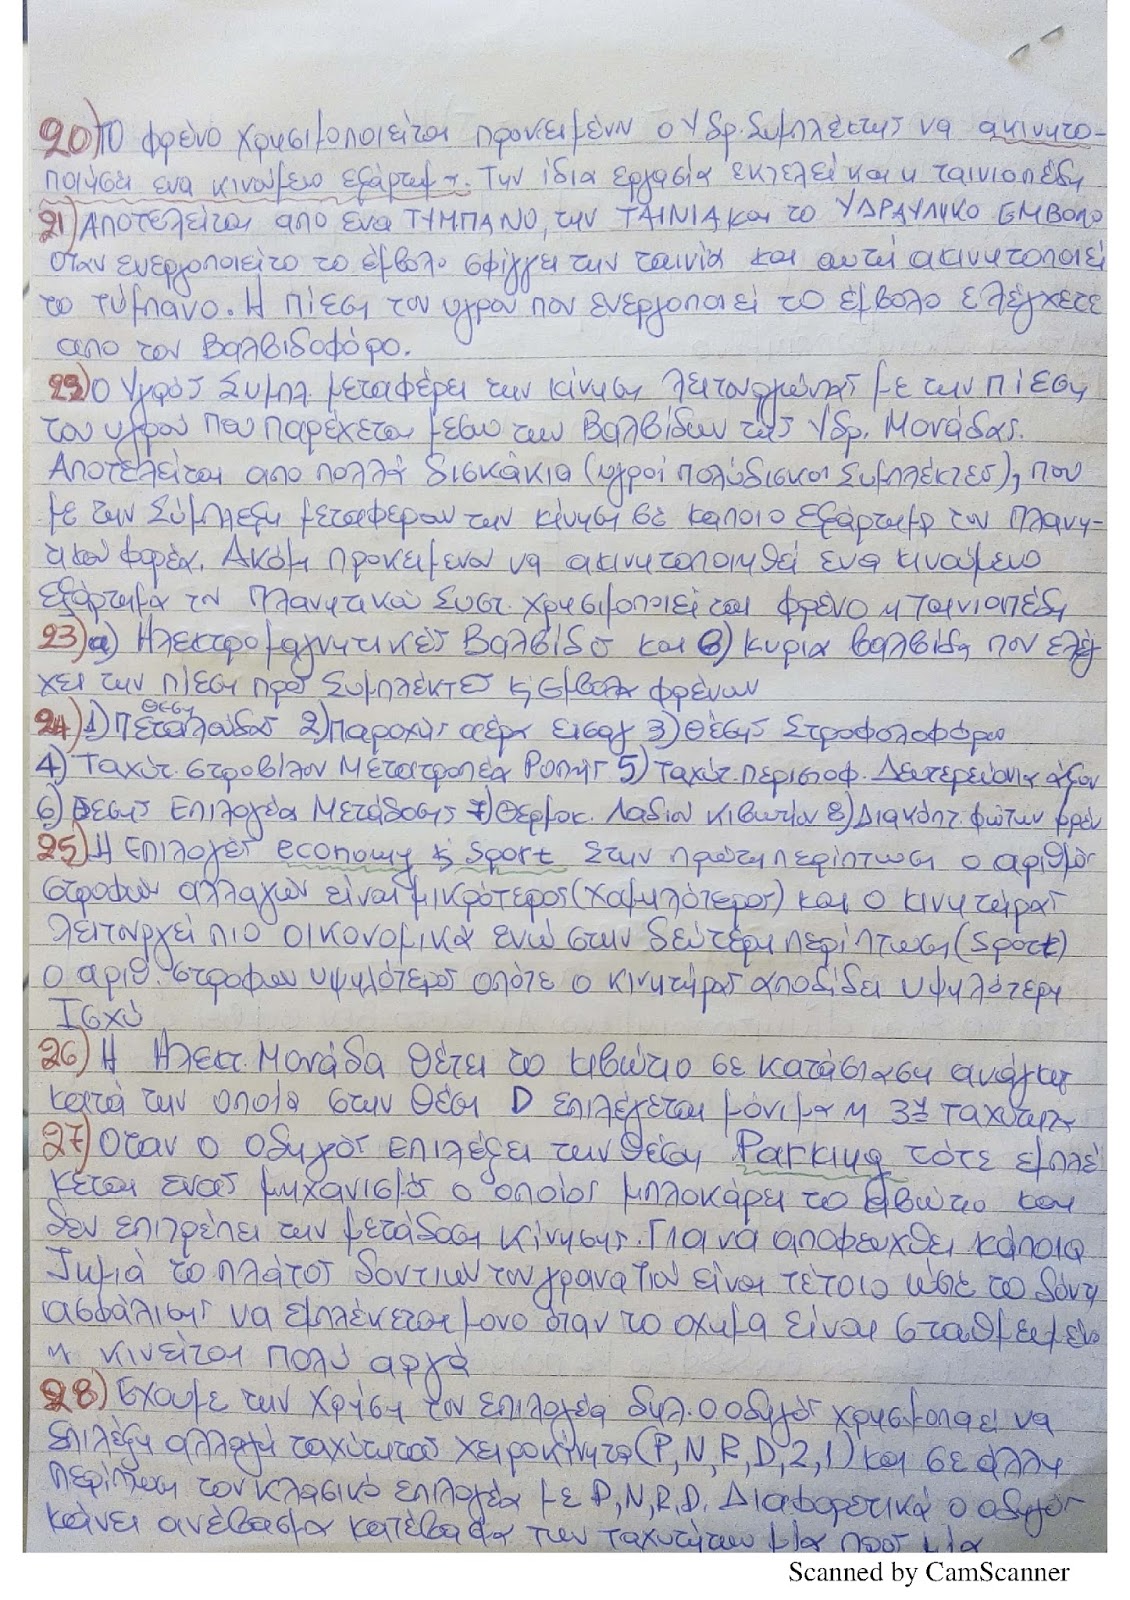 20) Το φρένο χρησιμοποιείται προκειμένη ο Υδρ. Συμπλέκτης να ακινητο-
ποιήσει ενα κινούμενο εξάρτημα. Την ίδια εργασία εκτελεί και η ταινιοπέδη
21) Αποτελείται απο ενα ΤΥΜΠΑΝΟ, την ΤΑΙΝΙΑ και το ΥΔΡΑΥΛΙΚΟ ΕΜΒΟΛΟ
οταν ενεργοποιείτο το έμβολο σφίγγει την ταινία και αυτή ακινητοποιεί
το τύμπανο. Η πίεση του υγρου που ενεργοποιεί το έμβολο ελέγχετε
απο τον Βαλβιδοφόρο.
22) Ο Υγρός Συμπλ. μεταφέρει την κίνηση λειτουργώντας με την πίεση
του υγρού που παρέχεται μεσω των Βαλβίδων της Υδρ. Μονάδας.
Αποτελείται απο πολλά δισκάκια (υγροί πολύδισκοι Συμπλέκτες), που
με την Σύμπλεξη μεταφερουν την κίνηση σε καποιο εξάρτημα του Πλανη-
τικου φορέα. Ακόμη προκειμενου να ακινητοποιηθεί ενα κινούμενο
εξάρτημα του Πλανητικού Συστ. χρησιμοποιείται φρένο η Ταινιοπέδη
23) α) Ηλεκτρομαγνητικές Βαλβίδες και β) κυρια Βαλβίδα που ελέγ
χει την πίεση προς Συμπλέκτες & εμβολα φρένων
24) 1) Θεση Πεταλούδας 2) Παροχής αέρα εισαγ 3) Θέσης Στροφαλοφόρου
4) Ταχύτ. στροβίλου Μετατροπέα Ροπής 5) Ταχύτ. περιστροφ. Δευτερεύοντα άξον
6) Θεσης Επιλογέα Μετάδοσης 7) Θερμοκ. Λαδιου κιβωτίου 8) Διακόπτ. φώτων φρέν
25) Η Επιλογές economy & Sport Στην πρώτη περίπτωση ο αριθμός
στροφών αλλαγών είναι μικρότερος (χαμηλότερος) και ο κινητήρας
λειτουργεί πιο οικονομικά ενώ στην δεύτερη περίπτωση (Sport)
ο αριθ. στροφων υψηλότερος οπότε ο κινητήρας αποδίδει υψηλότερη
Ισχύ
26) Η Ηλεκτ. Μονάδα θέτει το κιβώτιο σε κατάσταση ανάγκης
κατά την οποία στην θέση D επιλέγεται μόνιμα η 3η ταχύτητα
27) Οταν ο οδηγός επιλέξει την θέση Parking τότε εμπλέ
κεται ενας μηχανισμός ο οποίος μπλοκάρει το κιβώτιο και
δεν επιτρέπει την μετάδοση κίνησης. Για να αποφευχθει κάποια
Ζημιά το πλάτος δοντιών του γραναζιού είναι τέτοιο ώστε το δόντι
ασφάλισης να εμπλέκεται μονο όταν το οχημα είναι σταθμευμένο
η κινείται πολύ αργά
28) Εχουμε την χρήση του επιλογέα δηλ. ο οδηγός χρησιμοποιεί να
επιλέξη αλλαγή ταχύτητας χειροκίνητα (P, N, R, D, 2, 1) και σε άλλη
περίπτωση τον κλασικό επιλογέα με P, N, R, D. Διαφορετικά ο οδηγός
κάνει ανέβασμα κατέβασμα των ταχυτήτων μία προς μία
Scanned by CamScanner